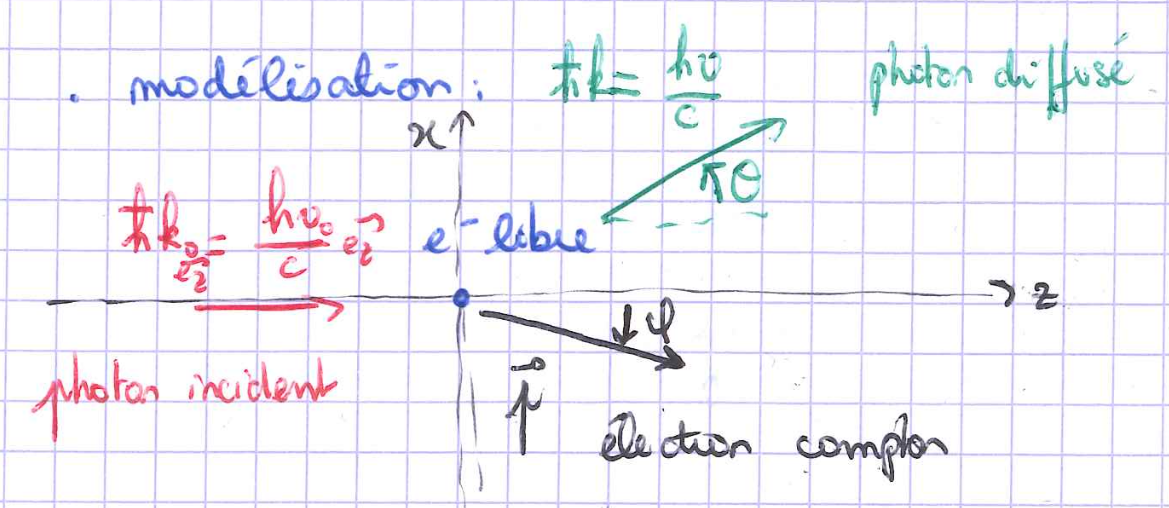 . modélisation : ħk = hν/c photon diffusé
x
θ
ħk₀ e⃗z = hν₀/c e⃗z e⁻ libre
z
φ
photon incident p⃗
électron compton